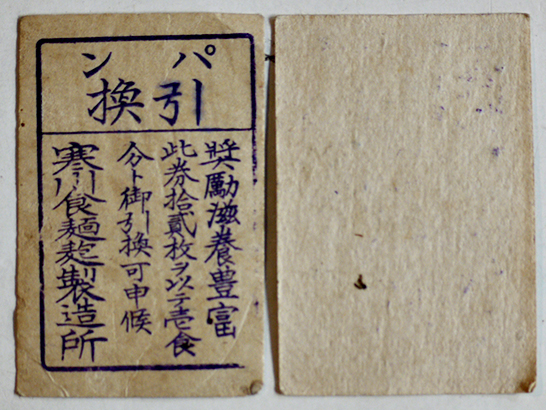 パン
引換
奨励滋養豊富
此券拾貳枚ヲ以テ壱食
分ト御引換可申候
寒川食麺麭製造所